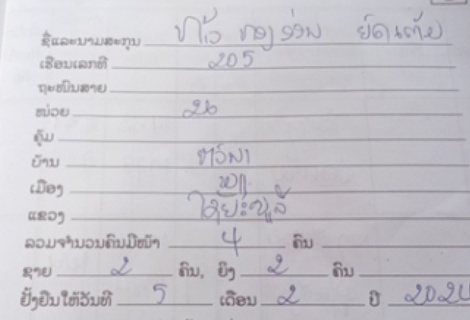 ຊື່ແລະນາມສະກຸນ ທ້າວ ທອງຈ່ອຍ
ເຮືອນເລກທີ 205
ຖະໜົນສາຍ
ໜ່ວຍ 20
ຄຸ້ມ
ບ້ານ
ເມືອງ
ແຂວງ ໄຊຍະບູລີ
ລວມຈຳນວນຄົນມີໜ້າ 4 ຄົນ
ຊາຍ 2 ຄົນ, ຍິງ 2 ຄົນ
ຢັ້ງຢືນໃຫ້ວັນທີ 5 ເດືອນ 2 ປີ 2024